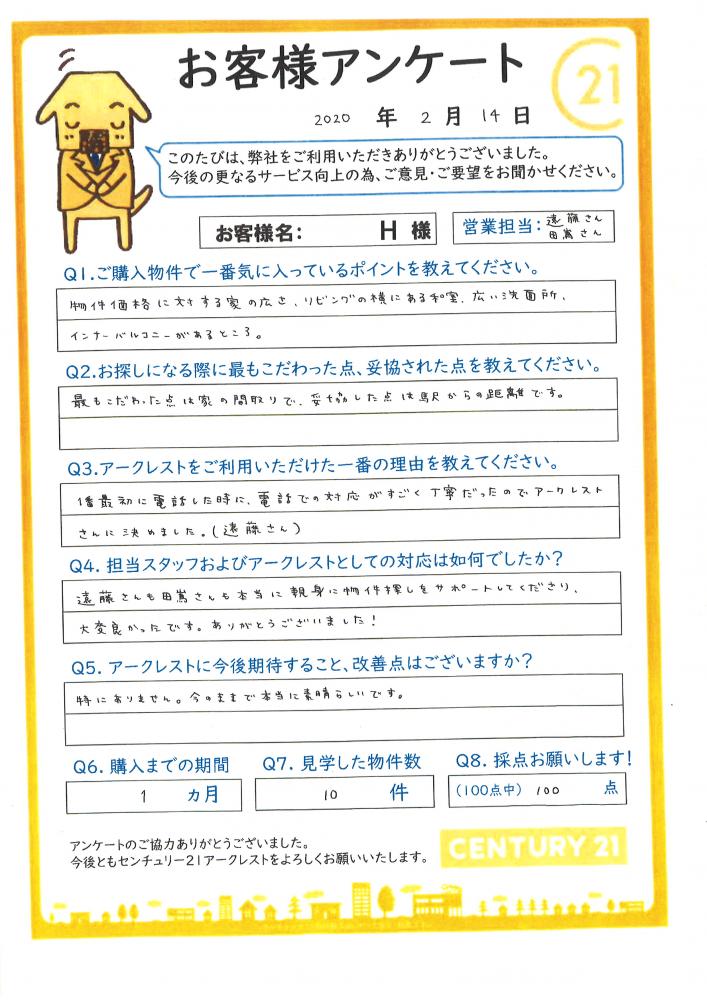 お客様アンケート
21
2020 年 2 月 14 日
このたびは、弊社をご利用いただきありがとうございました。
今後の更なるサービス向上の為、ご意見・ご要望をお聞かせください。
お客様名: H 様
営業担当: 遠藤さん
田嶌さん
Q1.ご購入物件で一番気に入っているポイントを教えてください。
物件価格に対する家の広さ、リビングの横にある和室、広い洗面所、
インナーバルコニーがあるところ。
Q2.お探しになる際に最もこだわった点、妥協された点を教えてください。
最もこだわった点は家の間取りで、妥協した点は駅からの距離です。
Q3.アークレストをご利用いただけた一番の理由を教えてください。
1番最初に電話した時に、電話での対応がすごく丁寧だったのでアークレスト
さんに決めました。(遠藤さん)
Q4. 担当スタッフおよびアークレストとしての対応は如何でしたか?
遠藤さんも田嶌さんも本当に親身に物件探しをサポートしてくださり、
大変良かったです。ありがとうございました!
Q5. アークレストに今後期待すること、改善点はございますか?
特にありません。今のままで本当に素晴らしいです。
Q6. 購入までの期間
1 ヵ月
Q7. 見学した物件数
10 件
Q8. 採点お願いします!
(100点中) 100 点
アンケートのご協力ありがとうございました。
今後ともセンチュリー21アークレストをよろしくお願いいたします。
CENTURY 21